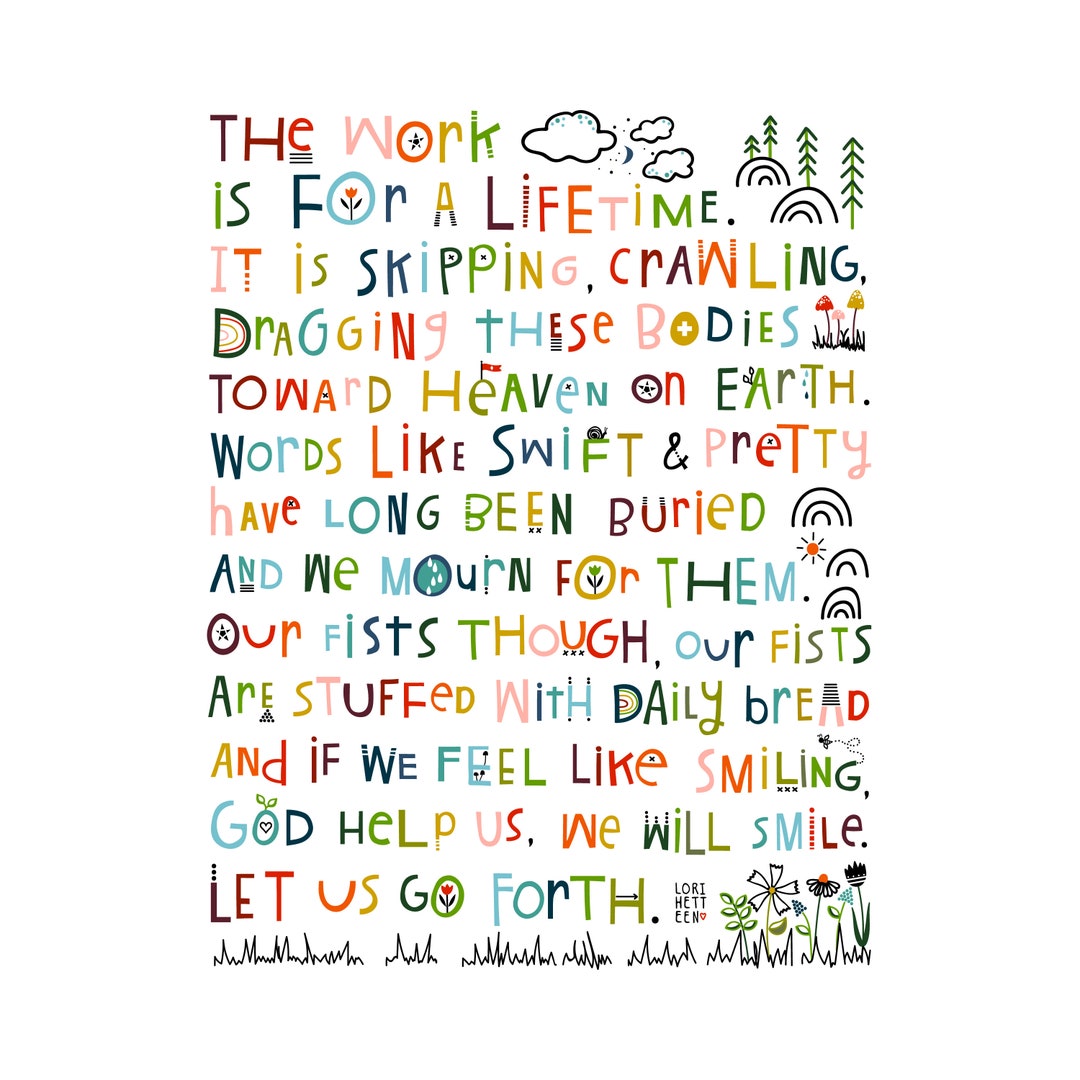 THe WOrk
iS FOr A LiFETiME.
IT iS SKiPPiNG, CrAWLiNG,
DrAGGiNg tHESe BODiES
TOWArD HeAVeN ON EArTH.
WOrDS LiKE SWiFT & PreTTy
hAVe LONG BEEN BUrieD
AND We MOurN FOr THEM.
OUr FiSTS THOUGH, OUr FiSTS
Are STUFFeD WitH DAiLy brEAD
ANd iF WE FEEL LiKe SMiLiNG,
GOD HeLp US, We WiLL SMiLe.
LET US GO FOrTH.
LORI
HETT
EEN